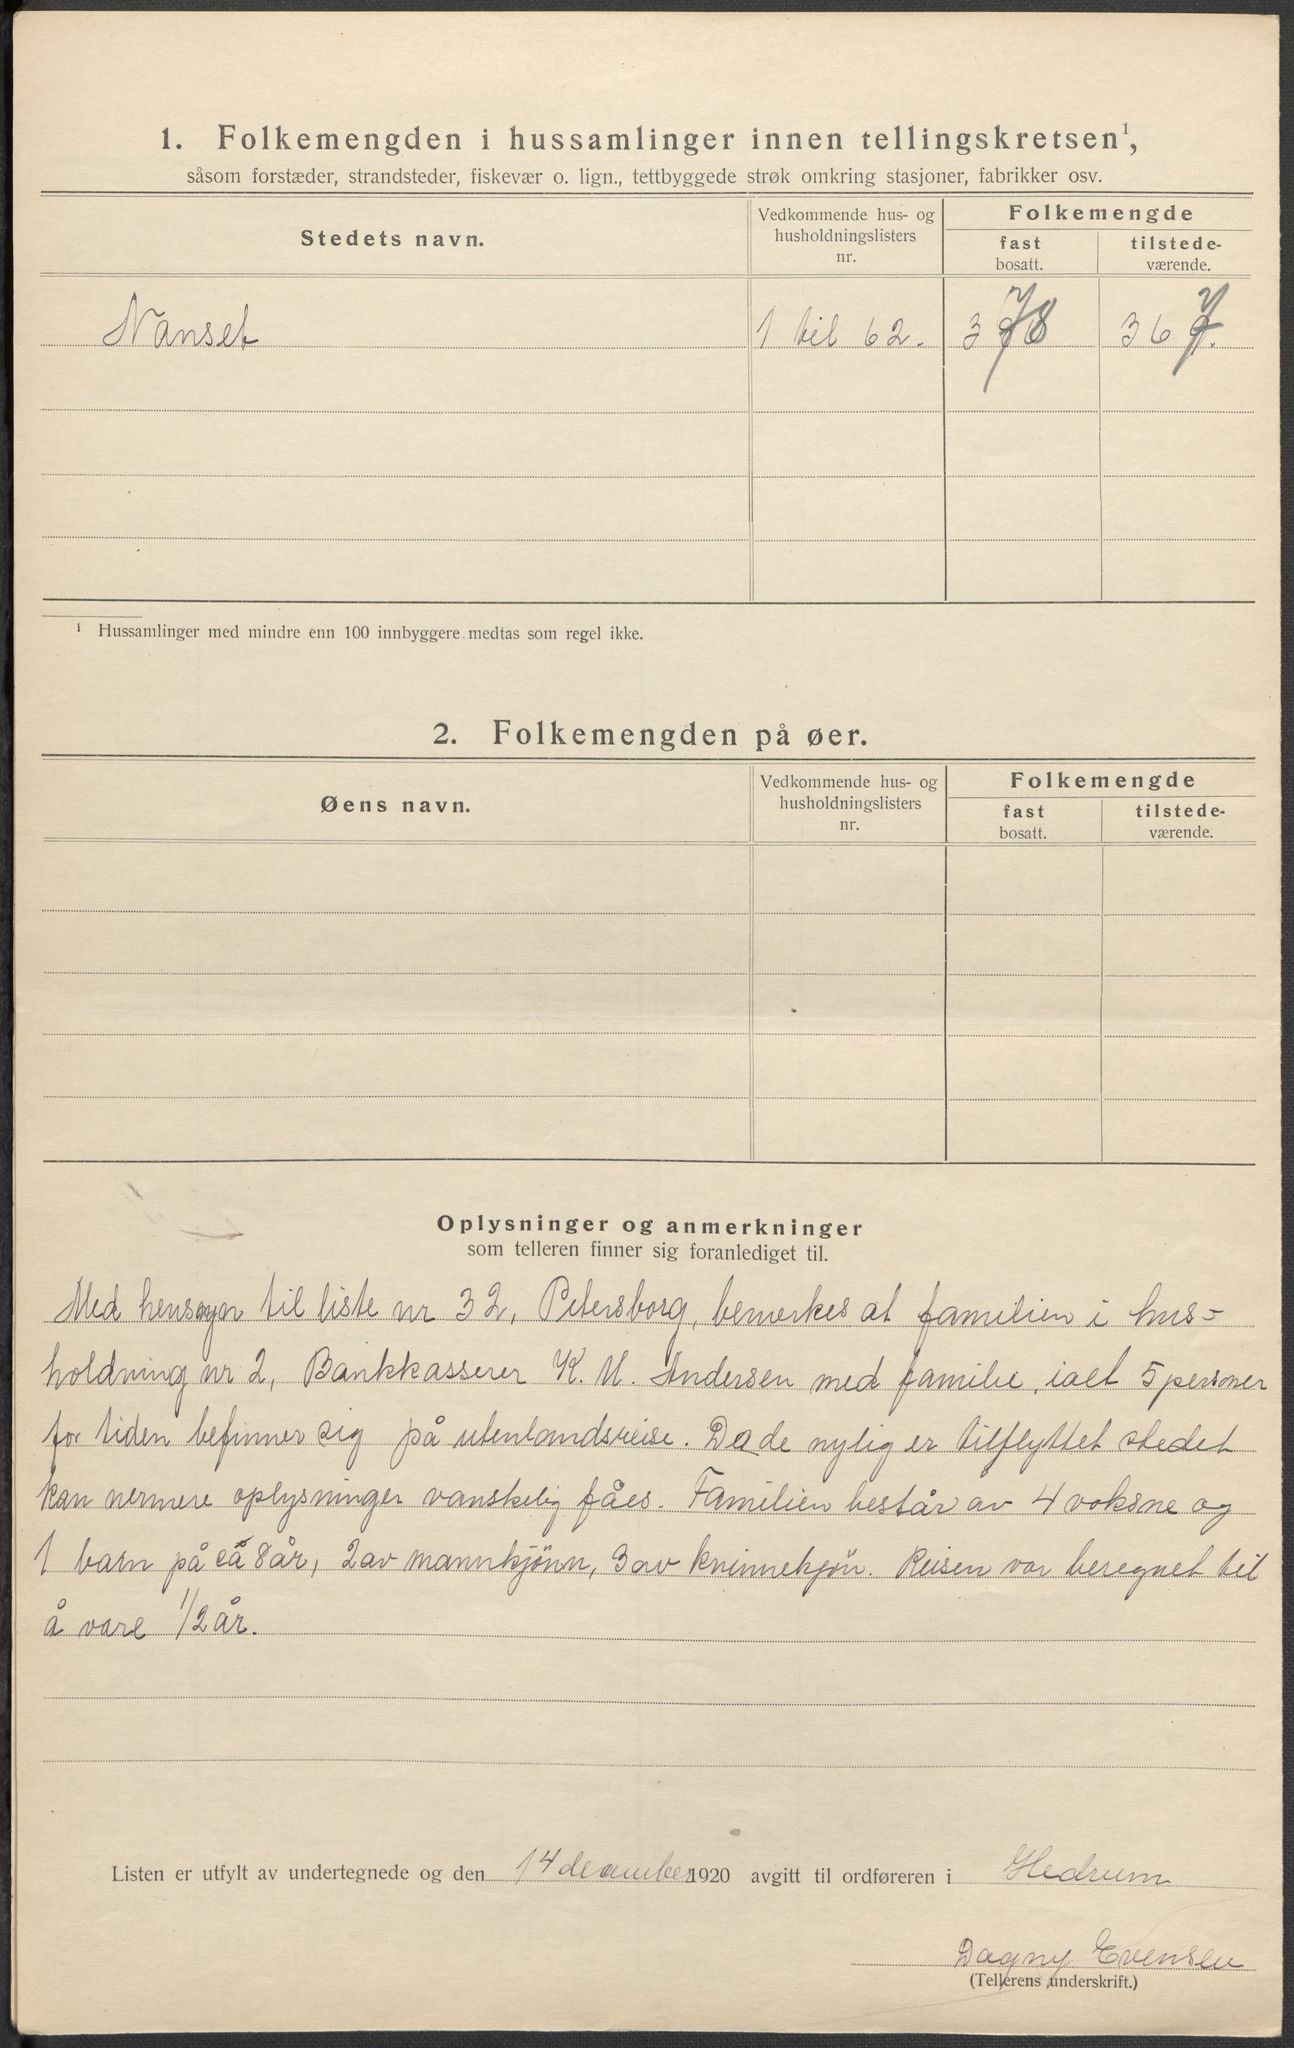 1. Folkemengden i hussamlinger innen tellingskretsen¹,
såsom forstæder, strandsteder, fiskevær o. lign., tettbyggede strøk omkring stasjoner, fabrikker osv.
Stedets navn.
Vedkommende hus- og
husholdningslisters
nr.
Folkemengde
fast
bosatt.
tilstede-
værende.
Nanset 1 til 62. 378 367.
¹ Hussamlinger med mindre enn 100 innbyggere medtas som regel ikke.
2. Folkemengden på øer.
Øens navn.
Vedkommende hus- og
husholdningslisters
nr.
Folkemengde
fast
bosatt.
tilstede-
værende.
Oplysninger og anmerkninger
som telleren finner sig foranlediget til.
Med hensyn til liste nr 32, Petersborg, bemerkes at familien i hus-
holdning nr 2, Bankkasserer K. M. Andersen med familie, ialt 5 personer
for tiden befinner sig på utenlandsreise. Da de nylig er tilflyttet stedet
kan nermere oplysninger vanskelig fåes. Familien består av 4 voksne og
1 barn på ca 8 år, 2 av mannkjønn, 3 av kvinnekjön. Reisen var beregnet til
å vare 1/2 år.
Listen er utfylt av undertegnede og den 14 december 1920 avgitt til ordføreren i Hedrum
Dagny Evensen
(Tellerens underskrift.)